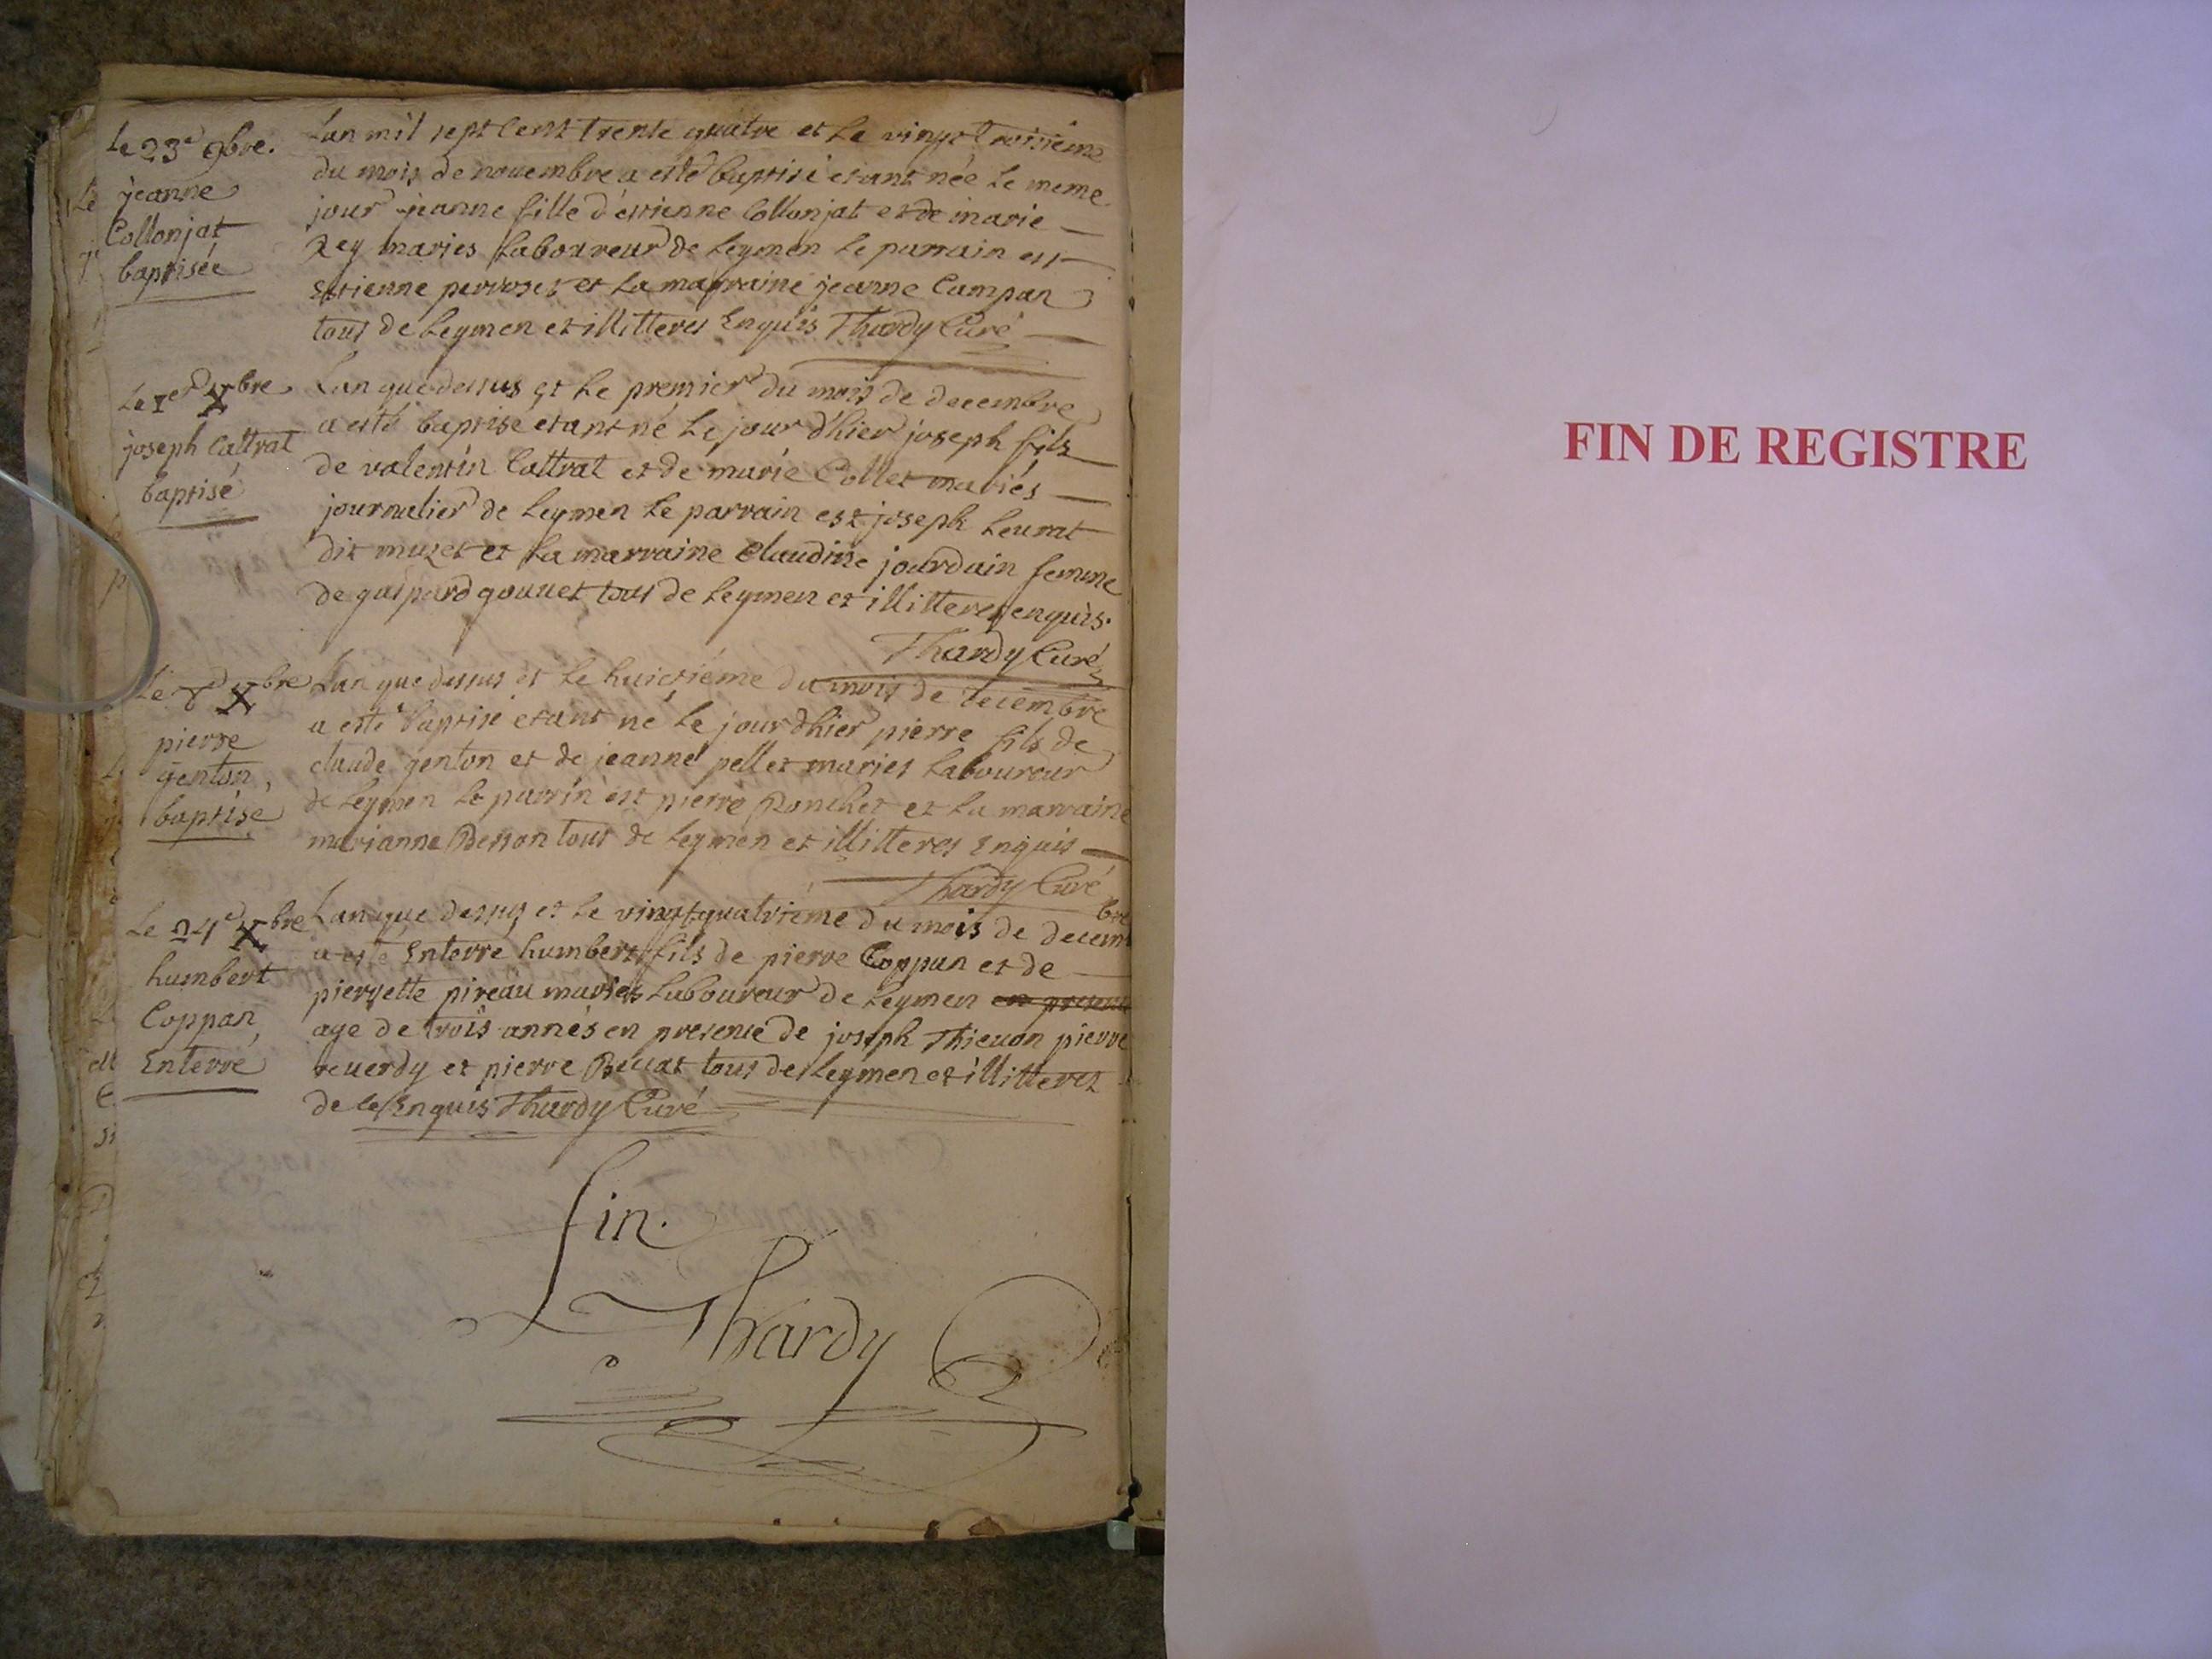 le 23e 9bre.
jeanne
Collonjat
baptisée
Lan mil sept Cent trente quatre et Le vingt troisieme
du mois de novembre a esté baptisé etant née Le meme
jour jeanne fille d'estienne Collonjat et de marie
Rey maries Laboureur de Leymen Le parrain est
Estienne et La marraine jeanne Campan
tous de Leymen et illitteres Enquis Thardy Curé
Le 1er Xbre
joseph Cattrat
baptisé
Lan que dessus et Le premier du mois de decembre
a esté baptisé etant né Le jour d'hier joseph fils
de valentin Cattrat et de marie Collet mariés
journalier de Leymen Le parrain est joseph Leurat
dit muzet et La marraine Claudine jourdain femme
de gaspard gouvet tous de Leymen et illitteres enquis.
Thardy Curé
Le 8e Xbre
pierre
genton
baptisé
Lan que dessus et Le huictiéme du mois de decembre
a esté baptisé etant né Le jour dhier pierre fils de
claude genton et de jeanne pellet maries Laboureur
de Leymen Le parrin est pierre Ronchet et La marraine
marianne Besson tous de Leymen et illitteres Enquis
Thardy Curé
Le 24e Xbre
humbert
Coppan
Enterré
Lan que dessus et Le vingtquatriéme du mois de decembre
a esté Enterré humbert fils de pierre Coppan et de
pierrette pireau mariés Laboureur de Leymen en presence
age de trois annés en presence de joseph Thievon pierre
reverdy et pierre Buvat tous de Leymen et illitteres
de ce Enquis Thardy Curé
fin.
Thardy
FIN DE REGISTRE